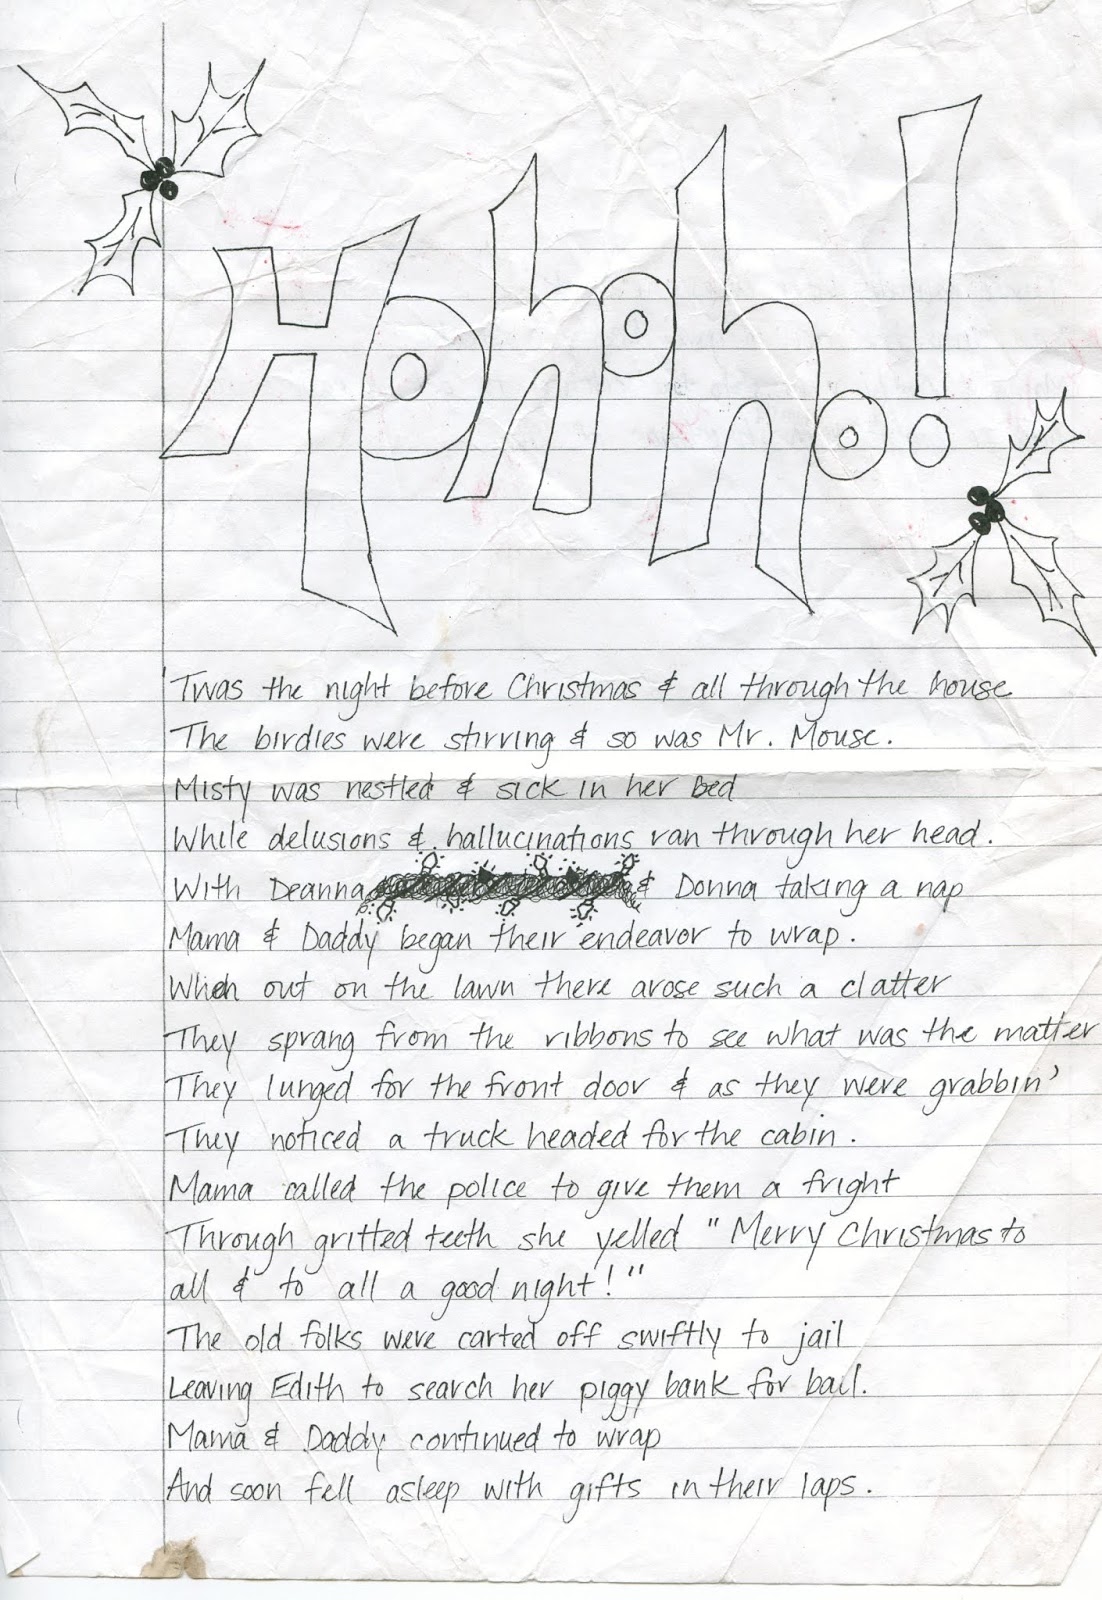 Hohoho!
'Twas the night before Christmas & all through the house
The birdies were stirring & so was Mr. Mouse.
Misty was nestled & sick in her bed
While delusions & hallucinations ran through her head.
With Deanna & Donna taking a nap
Mama & Daddy began their endeavor to wrap.
When out on the lawn there arose such a clatter
They sprang from the ribbons to see what was the matter
They lunged for the front door & as they were grabbin'
They noticed a truck headed for the cabin.
Mama called the police to give them a fright
Through gritted teeth she yelled "Merry Christmas to
all & to all a good night!"
The old folks were carted off swiftly to jail
Leaving Edith to search her piggy bank for bail.
Mama & Daddy continued to wrap
And soon fell asleep with gifts in their laps.